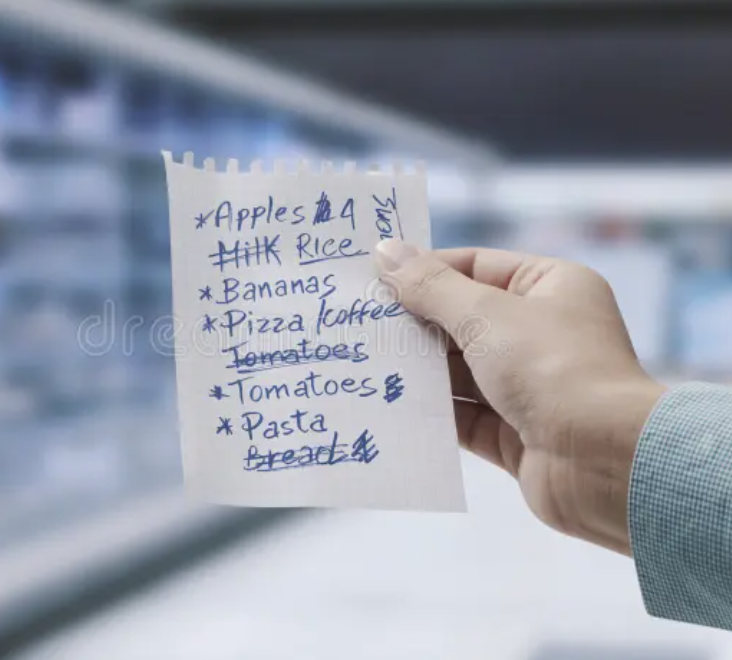 *Apples 4
Milk Rice
*Bananas
*Pizza /coffee
Tomatoes
*Tomatoes
*Pasta
Bread
dreamstime.